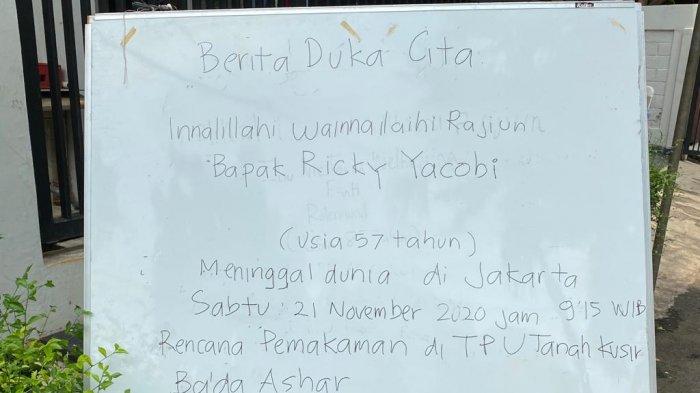 Berita Duka Cita
Innalillahi wainnailaihi Rajiun
Bapak Ricky Yacobi
(Usia 57 tahun)
Meninggal dunia di Jakarta
Sabtu : 21 November 2020 jam 9.15 WIB
Rencana Pemakaman di TPU Tanah Kusir
Ba'da Ashar